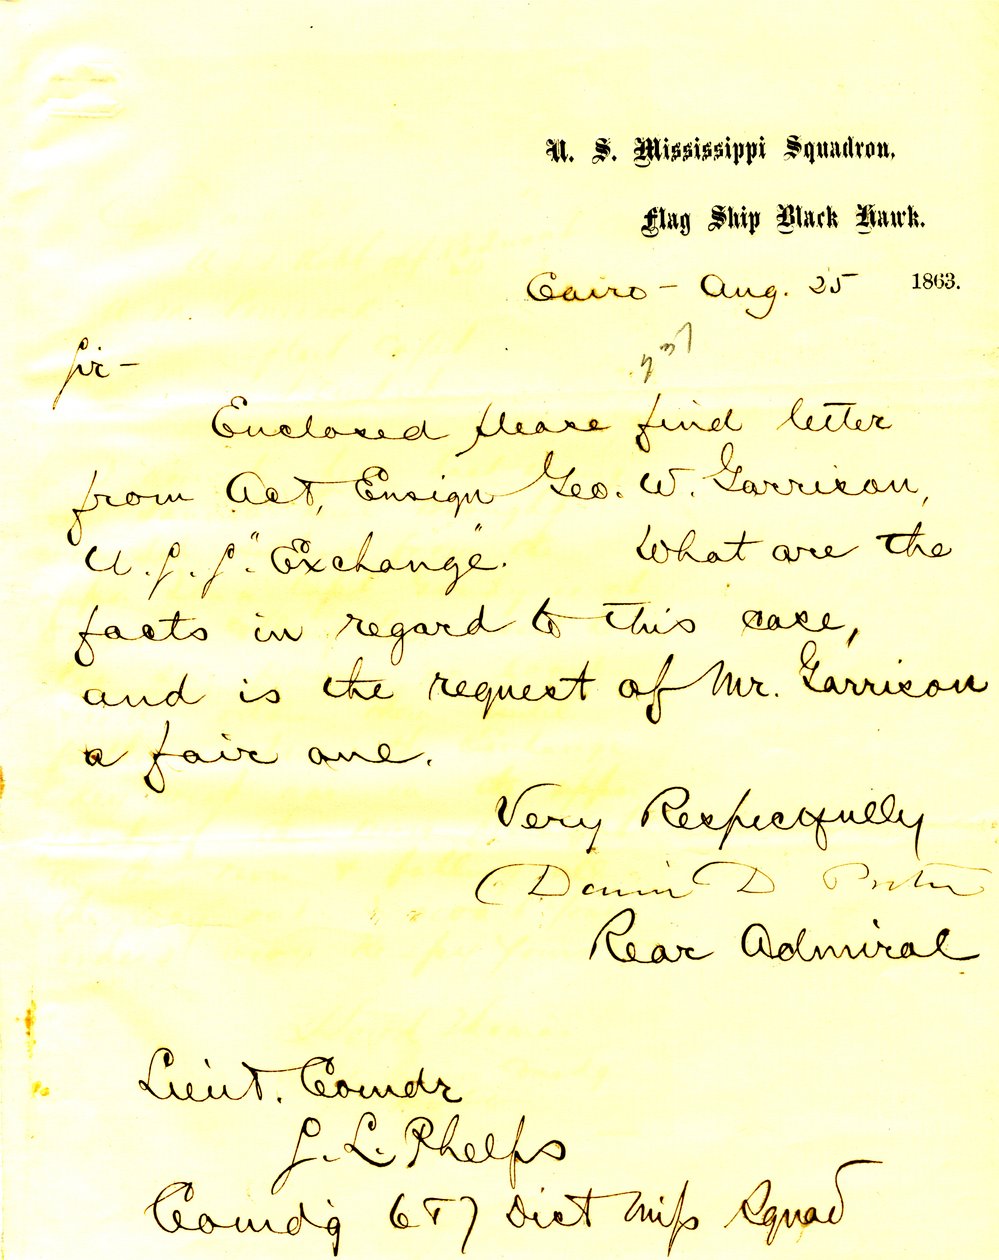 U. S. Mississippi Squadron,
Flag Ship Black Hawk.
Cairo - Aug. 25 1863.
Sir -
Enclosed please find letter
from Act, Ensign Geo. W. Garrison,
U. S. S. "Exchange". What are the
facts in regard to this case,
and is the request of Mr. Garrison
a fair one.
Very Respectfully
David D Porter
Rear Admiral
Lieut. Comdr
S. L. Phelps
Comdg 6 & 7 Dist Miss Squad